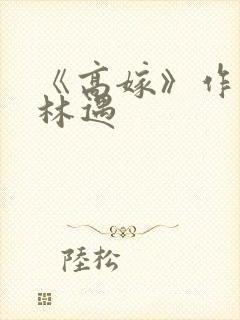 《高嫁》作
林遇
陸松